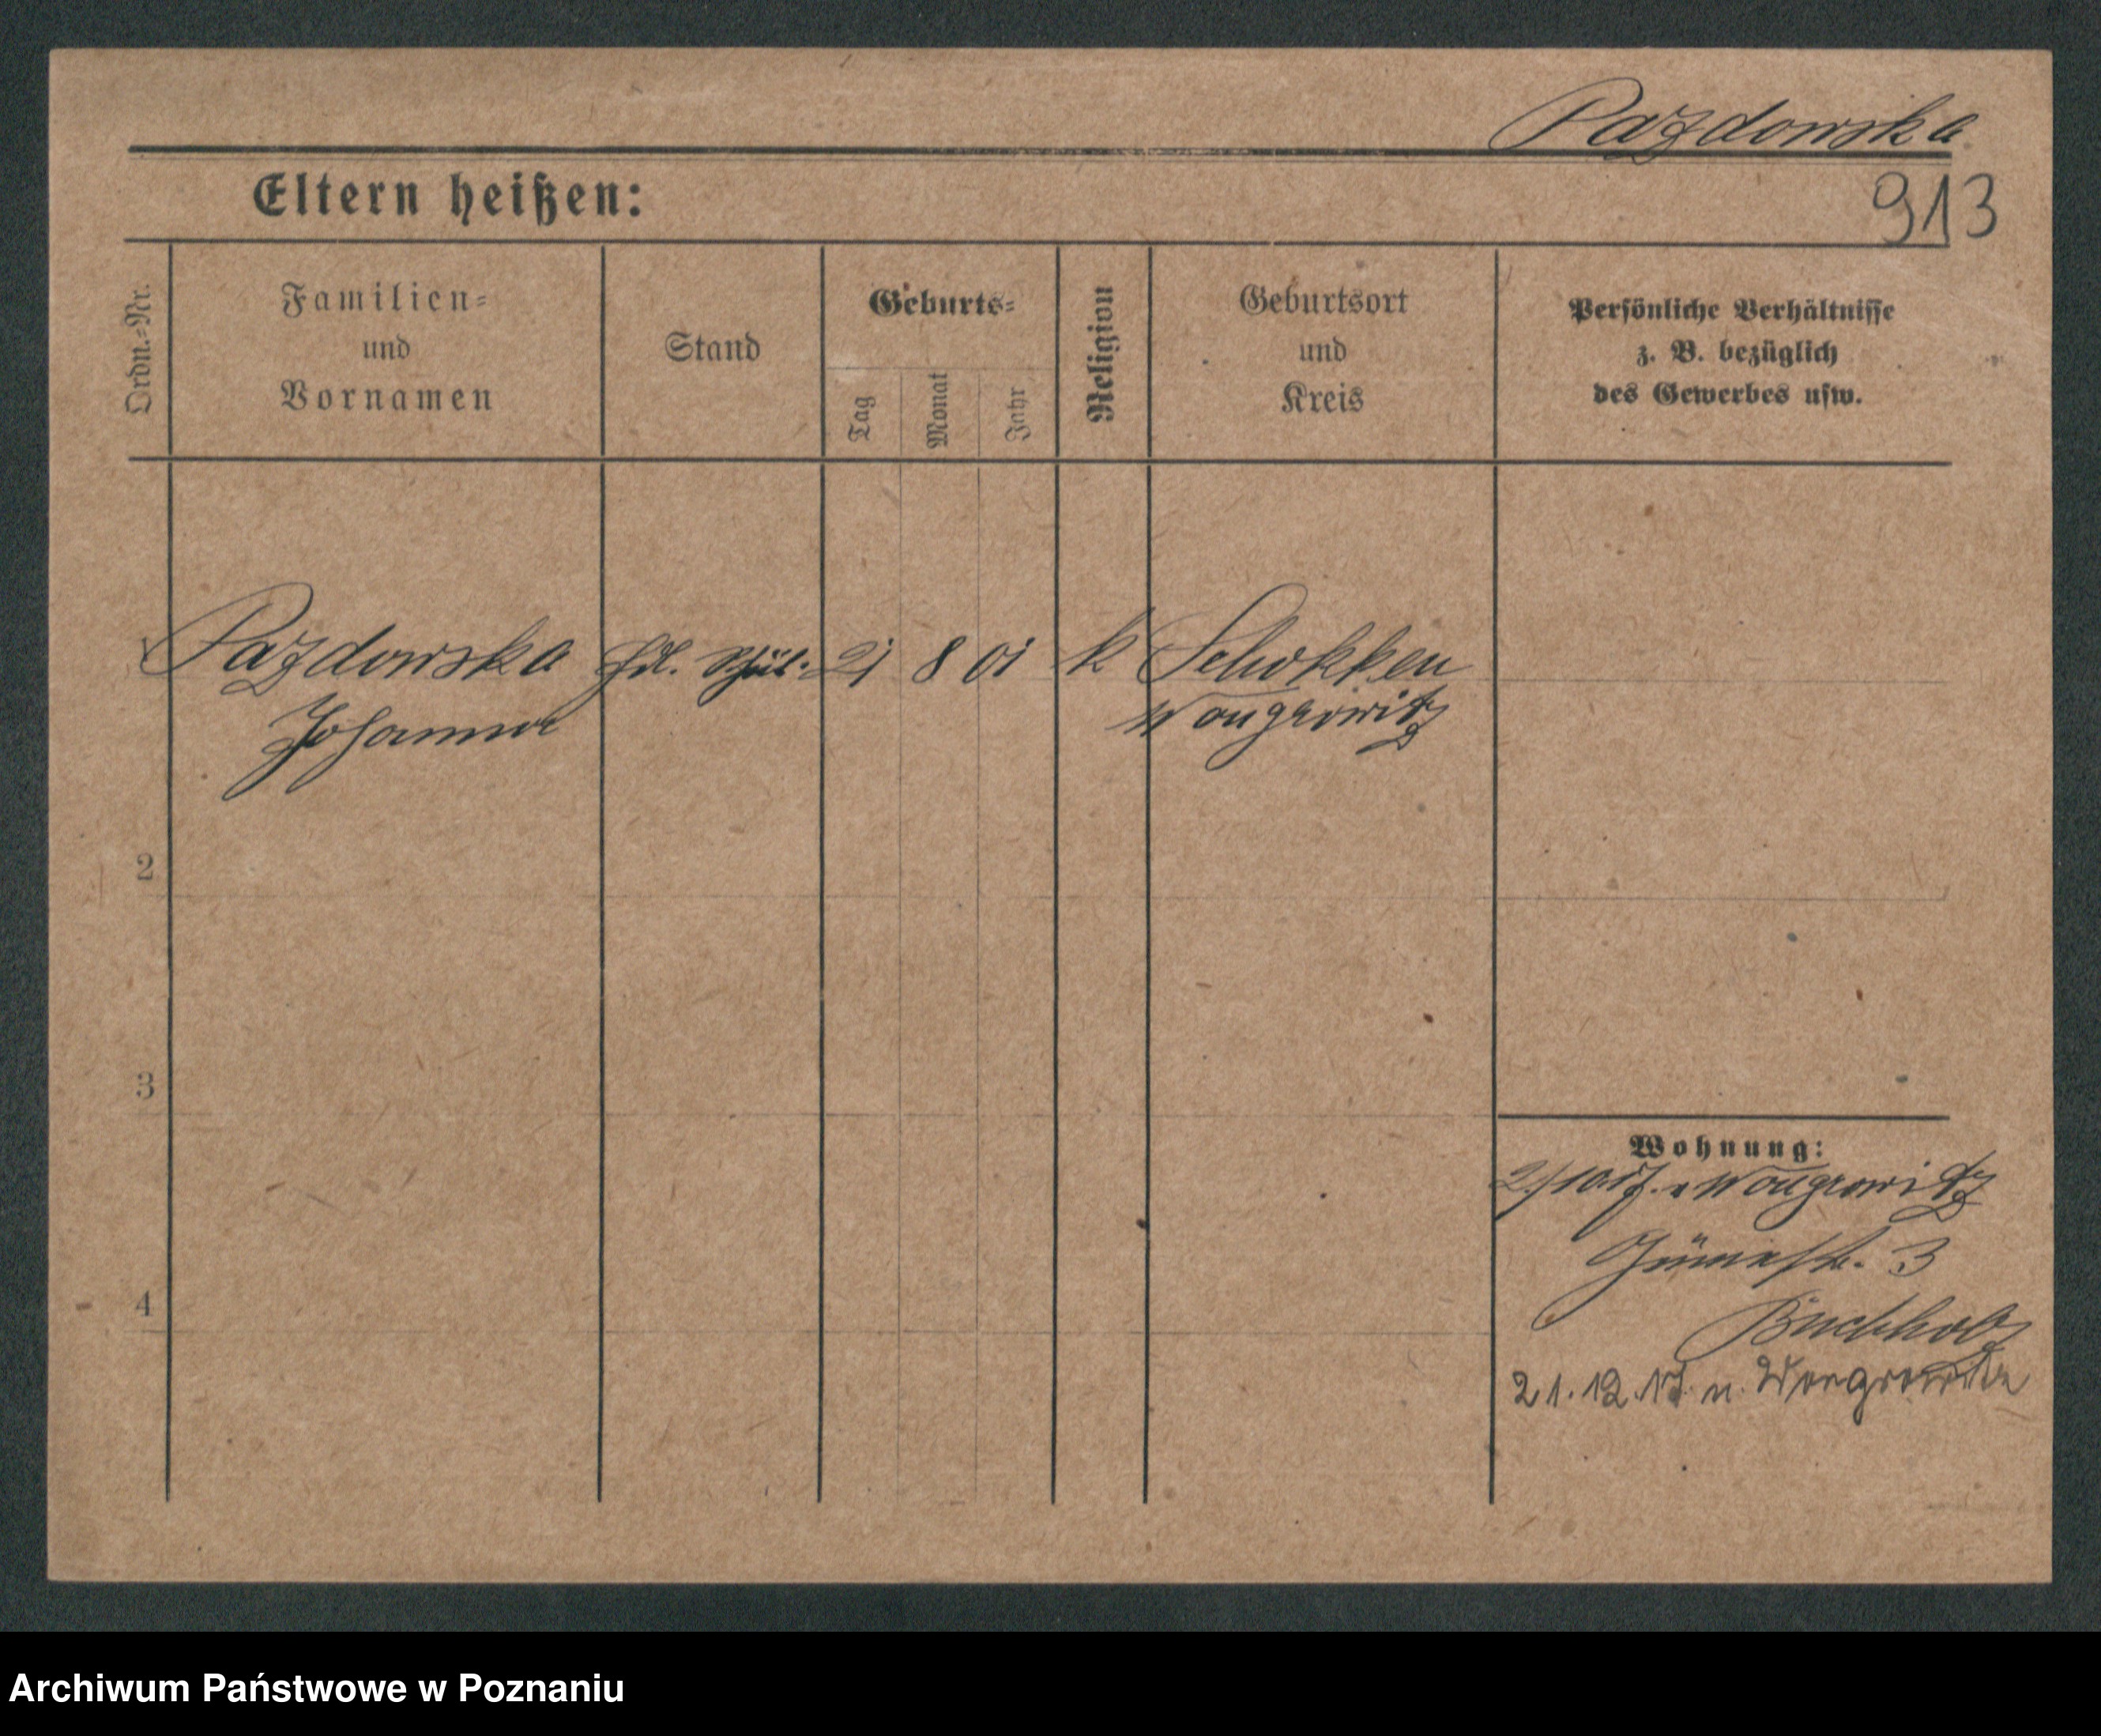 Pazdowska
Eltern heißen:
913
Ordn.=Nr.
Familien=
und
Vornamen
Stand
Geburts=
Tag
Monat
Jahr
Religion
Geburtsort
und
Kreis
Persönliche Verhältnisse
z. B. bezüglich
des Gewerbes usw.
Pazdowska
Johanna
21 8 01 k Schokken
Wongrowitz
2
3
4
Wohnung:
Wongrowitz
3
Buchholz
21.12.17. n. Wongrowitz
Archiwum Państwowe w Poznaniu